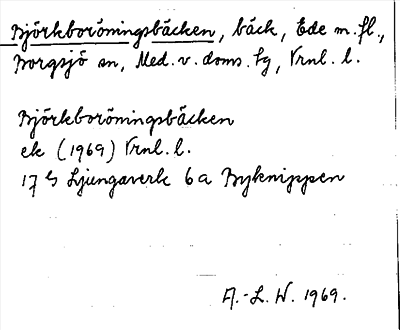 Björkboröningsbäcken, bäck, Ede m.fl.,
Borgsjö sn, Med. v. doms. tg, Vrnl. l.
Björkboröningsbäcken
ek (1969) Vrnl. l.
17 G Ljungaverk 6a Byknippen
A.-L. W. 1969.